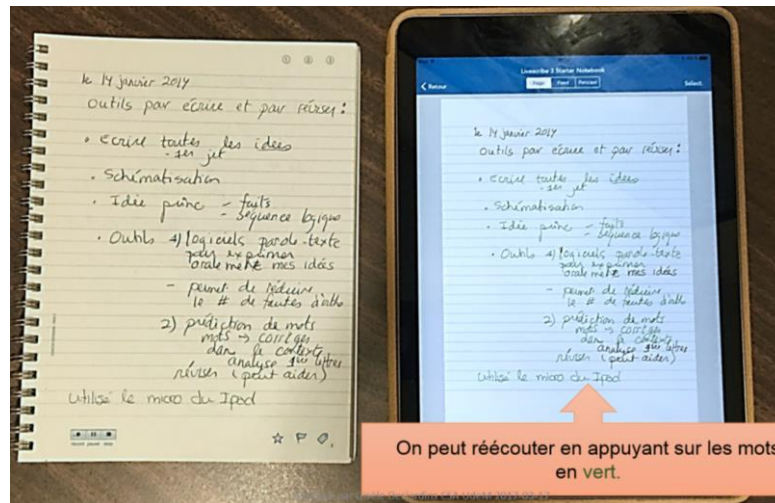 le 14 janvier 2014
Outils par écrire et par réviser :
• Ecrire toutes les idées
- 1er jet
• Schématisation
• Idée princ - faits
- séquence logique
• Outils 1) logiciels parole-texte
pour exprimer
oralement mes idées
- permet de réduire
le # de fautes d'ortho
2) prédiction de mots
mots → corriger
dans le contexte
analyse 1ères lettres
réviser (peut aider)
Utilise le micro du Ipod
record pause stop
Livescribe 3 Starter Notebook
Retour
Page
Feed
Pencast
Select.
le 14 janvier 2014
Outils par écrire et par réviser :
• Ecrire toutes les idées
- 1er jet
• Schématisation
• Idée princ - faits
- séquence logique
• Outils 1) logiciels parole-texte
pour exprimer
oralement mes idées
- permet de réduire
le # de fautes d'ortho
2) prédiction de mots
mots → corriger
dans le contexte
analyse 1ères lettres
réviser (peut aider)
Utilise le micro du Ipod
On peut réécouter en appuyant sur les mots
en vert.